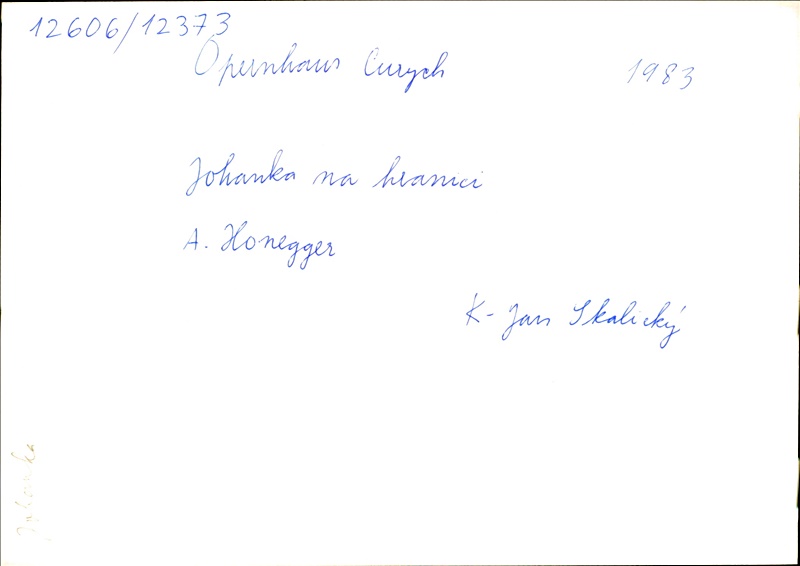 12606/12373
Opernhaus Curych 1983
Johanka na hranici
A. Honegger
K- Jan Skalický
Johanka